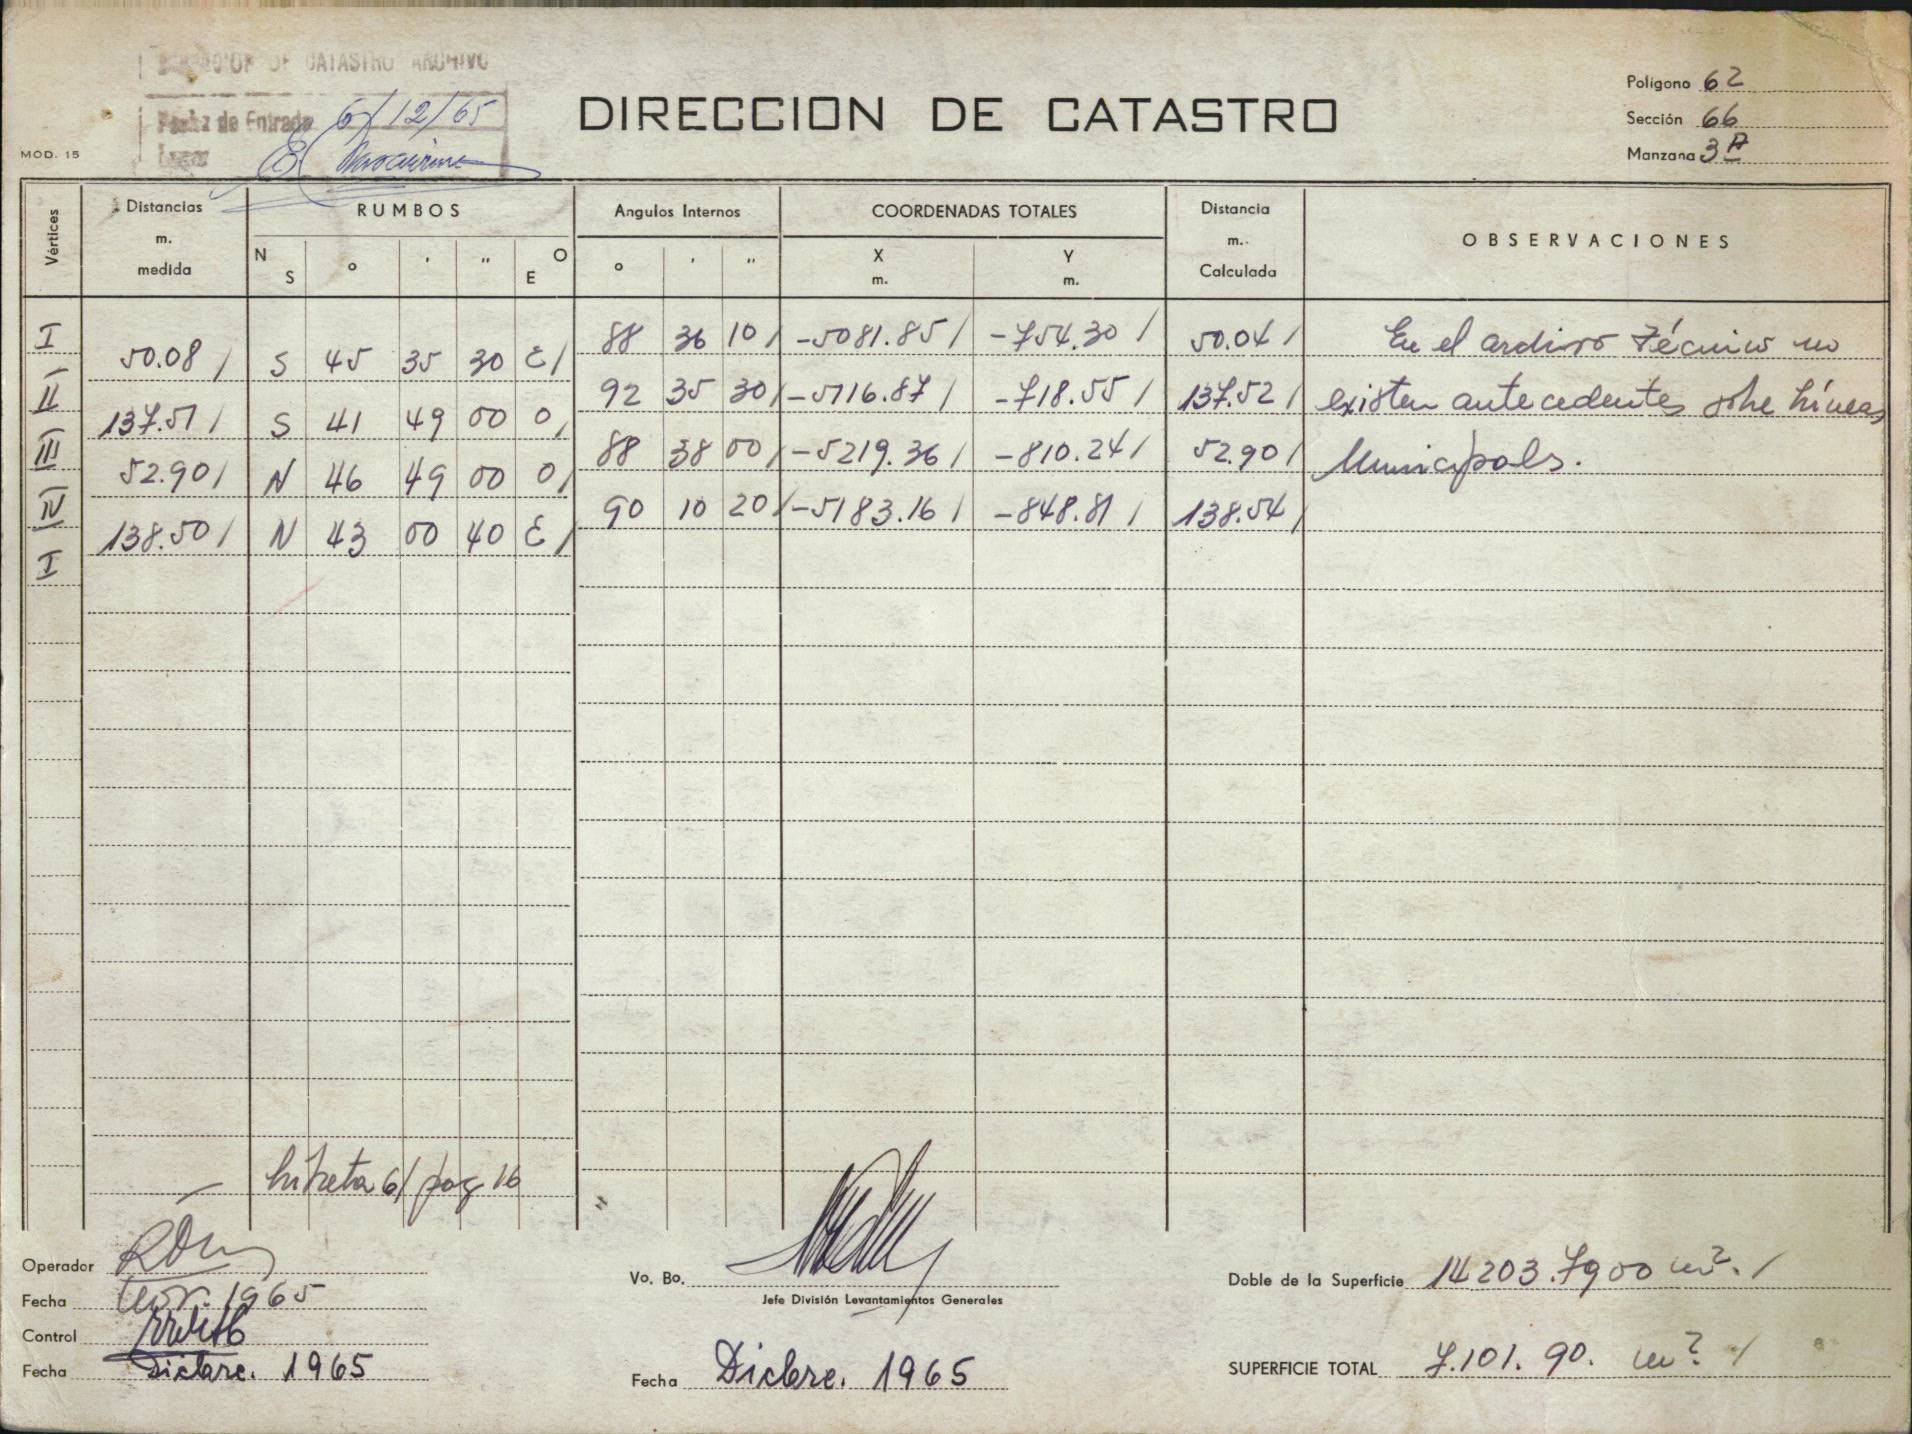 DIRECCION DE CATASTRO ARCHIVO
Fecha de Entrada 6/12/65
Legajo
MOD. 15
DIRECCION DE CATASTRO
Polígono 62
Sección 66
Manzana 3A
Vértices
Distancias m. medida
RUMBOS
N S ° ' " O E
Angulos Internos
° ' "
COORDENADAS TOTALES
X m. Y m.
Distancia m. Calculada
OBSERVACIONES
I 88 36 10 / -5081.85 / -754.30 / 50.04 / En el archivo técnico no
50.08 / S 45 35 30 E /
II 92 35 30 / -5116.87 / -718.55 / 137.52 / existen antecedentes sobre líneas
137.51 / S 41 49 00 O /
III 88 38 00 / -5219.36 / -810.24 / 52.90 / Municipales.
52.90 / N 46 49 00 O /
IV 90 10 20 / -5183.16 / -848.81 / 138.54 /
138.50 / N 43 00 40 E /
I
Libreta 6/ pag 16
Operador
Fecha Nov. 1965
Control
Fecha Dicbre. 1965
Vo. Bo.
Jefe División Levantamientos Generales
Fecha Dicbre. 1965
Doble de la Superficie 14203.7900 m². /
SUPERFICIE TOTAL 7.101.90. m². /